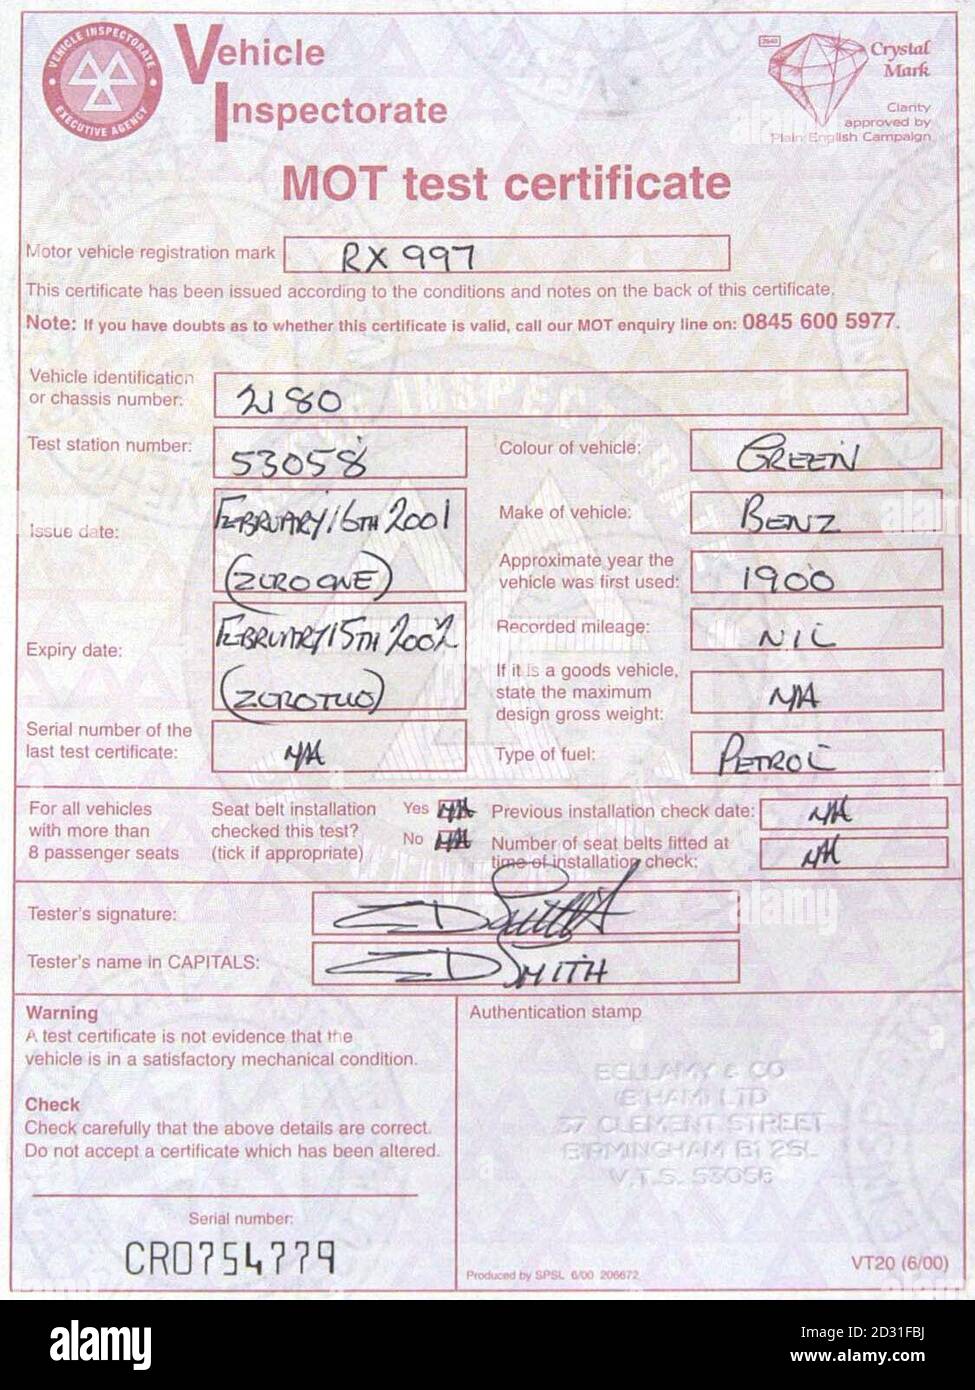 VEHICLE INSPECTORATE
EXECUTIVE AGENCY
Vehicle
Inspectorate
Crystal
Mark
Clarity
approved by
Plain English Campaign
MOT test certificate
Motor vehicle registration mark RX 997
This certificate has been issued according to the conditions and notes on the back of this certificate.
Note: If you have doubts as to whether this certificate is valid, call our MOT enquiry line on: 0845 600 5977.
Vehicle identification
or chassis number: 2180
Test station number: 53058
Colour of vehicle: GREEN
Issue date: FEBRUARY 16TH 2001
(ZERO ONE)
Make of vehicle: BENZ
Approximate year the
vehicle was first used: 1900
Expiry date: FEBRUARY 15TH 2002
(ZERO TWO)
Recorded mileage: NIL
If it is a goods vehicle,
state the maximum
design gross weight: N/A
Serial number of the
last test certificate: N/A
Type of fuel: PETROL
For all vehicles
with more than
8 passenger seats
Seat belt installation
checked this test?
(tick if appropriate)
Yes N/A
No N/A
Previous installation check date: N/A
Number of seat belts fitted at
time of installation check: N/A
Tester's signature:
Tester's name in CAPITALS: SMITH
Warning
A test certificate is not evidence that the
vehicle is in a satisfactory mechanical condition.
Check
Check carefully that the above details are correct.
Do not accept a certificate which has been altered.
Serial number:
CR0754779
Authentication stamp
BELLAMY & CO
(B'HAM) LTD
37 CLEMENT STREET
BIRMINGHAM B1 2SL
V.T.S. 53058
Produced by SPSL 6/00 206672
VT20 (6/00)
alamy
Image ID: 2D31FBJ
www.alamy.com